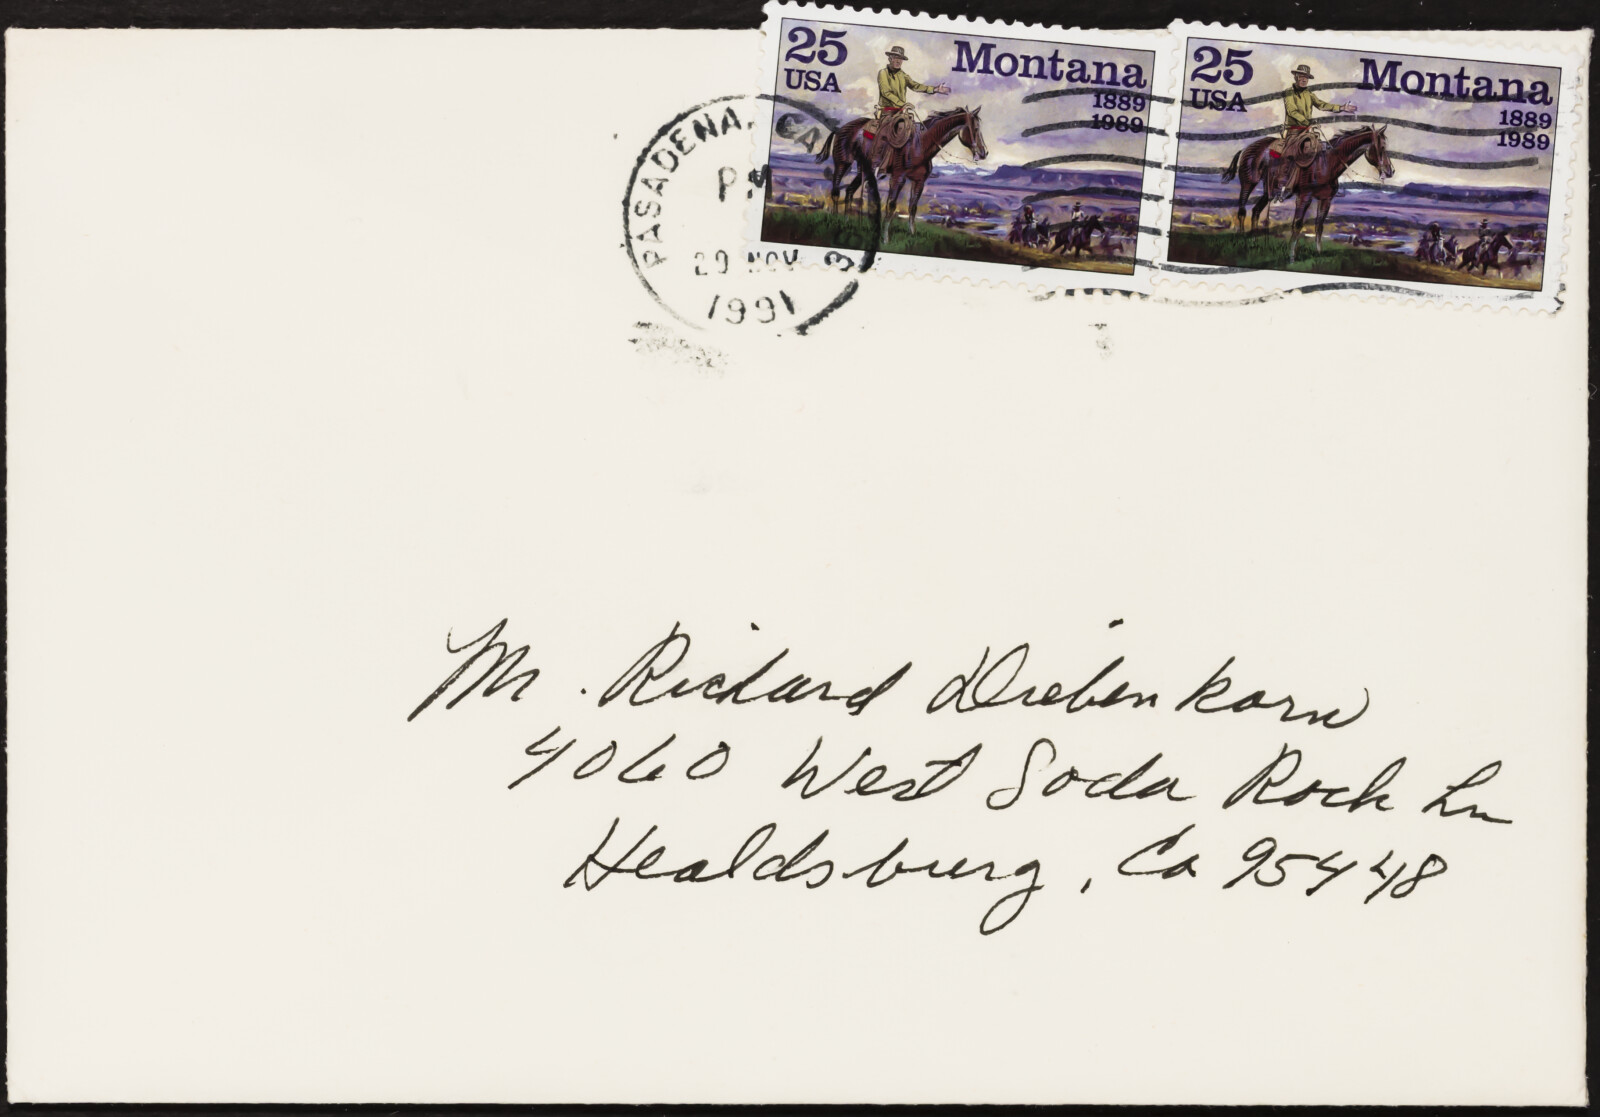 25
USA
Montana
1889
1989
25
USA
Montana
1889
1989
PASADENA, CA
PM
29 NOV
1991
Mr. Richard Diebenkorn
4060 West Soda Rock Ln
Healdsburg, Ca 95448